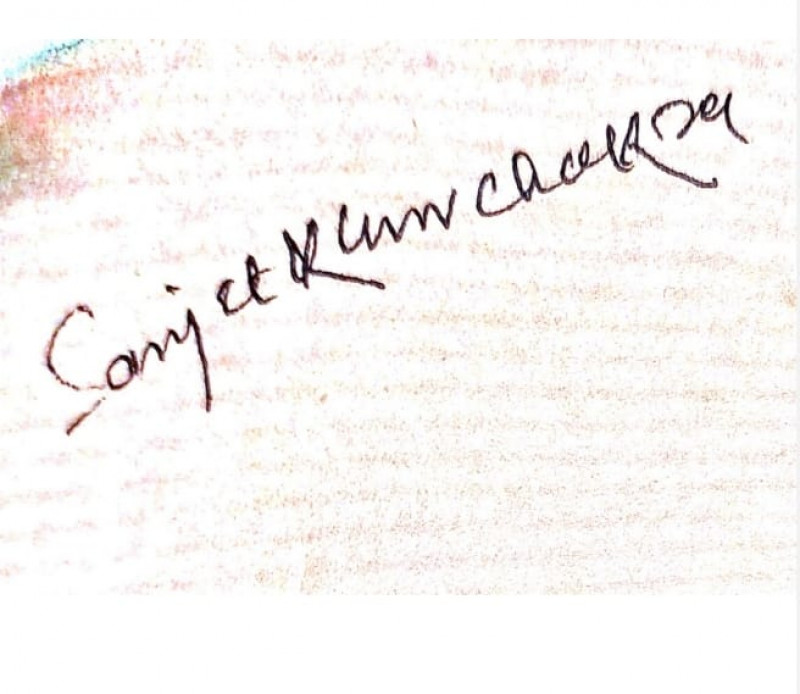 Sanjet Kumr Chakra